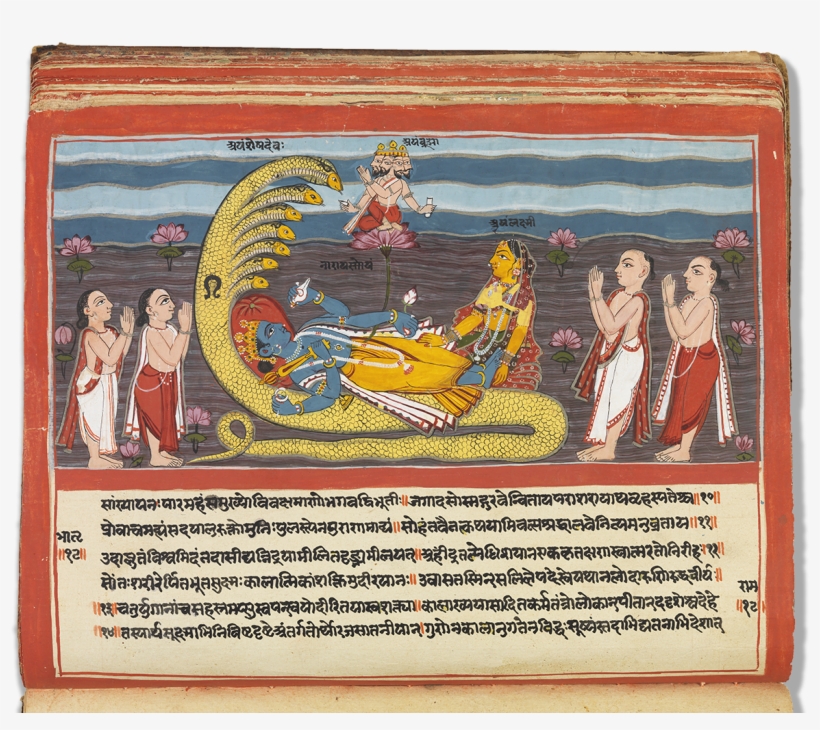 अयंशेषदेवः
अयंब्रह्मा
अयंलक्ष्मी
नारायणोयं
सांख्यायनः पारमहंस्यमुख्यो विवक्षमाणो भगवद्विभूतीः॥जगाद सोस्मद्गुरवेन्विताय पराशरायाथ बृहस्पतेश्च॥१०॥
प्रोवाच मह्यं स दयालुरुक्तो मुनिः पुलस्त्येन पुराणमाद्यं॥सोहं तवैतत्कथयामि वत्स श्रद्धालवे नित्यमनुव्रताय॥११॥
उदाप्लुतं विश्वमिदं तदासीद्यन्निद्रयामीलितदृङ्न्यमीलयत्॥अहींद्रतल्पेधिशयान एकः कृतक्षणः स्वात्मरतौ निरीहः
सोंतः शरीरेर्पितभूतसूक्ष्मः कालात्मिकां शक्तिमुदीरयानः॥उवास तस्मिन्सलिले पदे स्वे यथानलो दारुणि रुद्धवीर्यः॥
चतुर्युगानां च सहस्रमप्सु स्वपन्स्वयोदीरितया स्वशक्त्या॥कालाख्ययासादितकर्मतंत्रो लोकानपीतान्ददृशे स्वदेहे
तस्यार्थसूक्ष्माभिनिविष्टदृष्टेरंतर्गतोर्थो रजसा तनीयान्॥गुणेन कालानुगतेन विद्धः सूष्यंस्तदाभिद्यत नाभिदेशात्
राम
॥१८॥